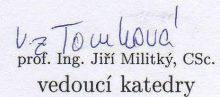 v z Tomková
prof. Ing. Jiří Militký, CSc.
vedoucí katedry